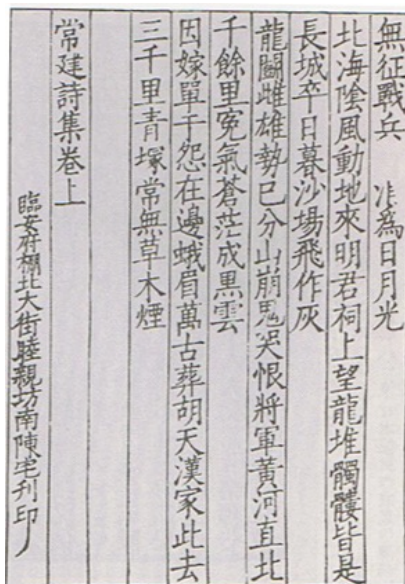 無征戰兵 作為日月光
北海陰風動地來明君祠上望龍堆髑髏皆是
長城卒日暮沙場飛作灰
龍鬭雌雄勢已分山崩鬼哭恨將軍黃河直北
千餘里寃氣蒼茫成黒雲
因嫁單于怨在邊蛾眉萬古葬胡天漢家此去
三千里青塚常無草木煙
常建詩集卷上
臨安府棚北大街睦親坊南陳宅刊印